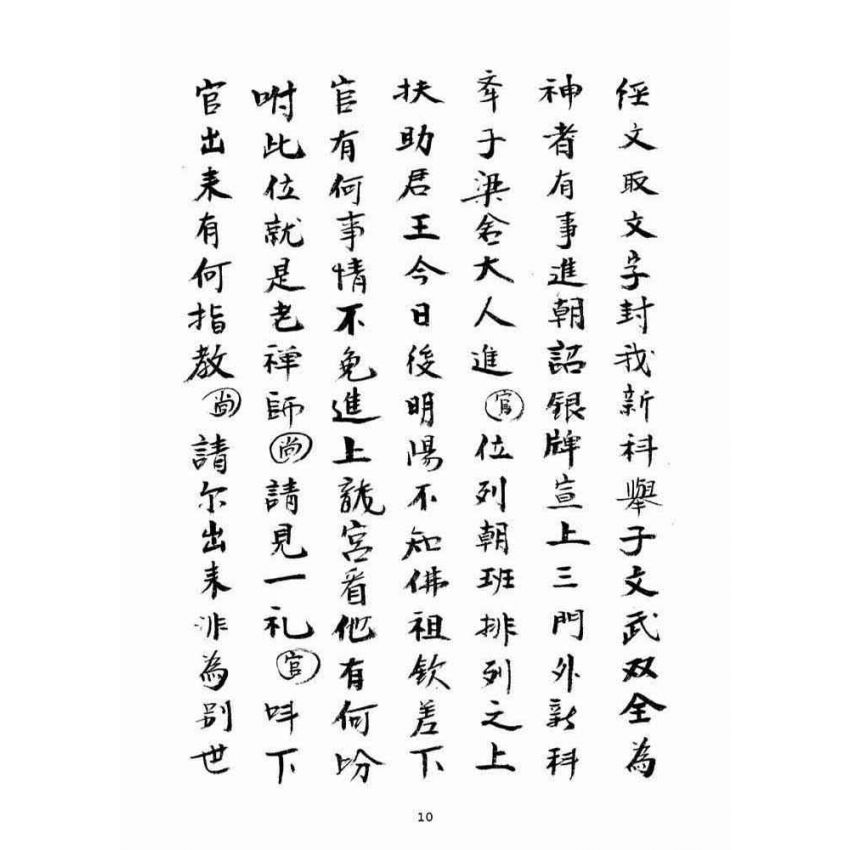 経文取文字封我新科舉子文武双全為
神者有事進朝詔銀牌宣上三門外新科
牽子梁舍大人進官位列朝班排列之上
扶助君王今日後明陽不知佛祖欽差下
官有何事情不免進上龍宮看他有何吩
咐此位就是老禅師尚請見一礼官叫下
官出来有何指教尚請尔出来非為别世
10